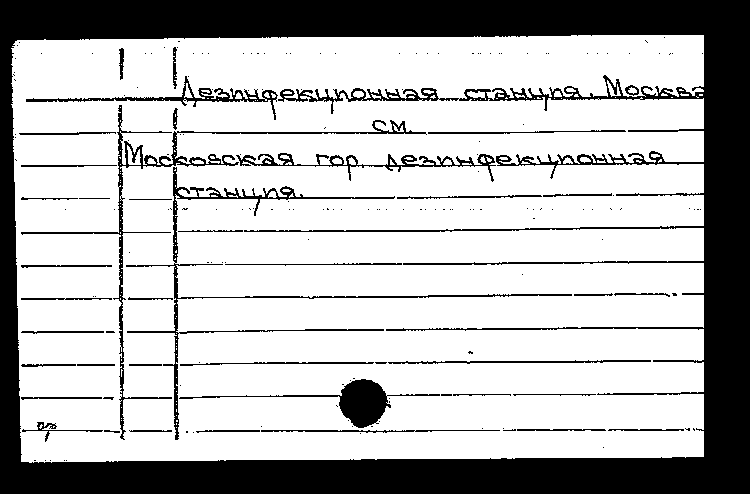 Дезинфекционная станция. Москва
см.
Московская гор. дезинфекционная
станция.